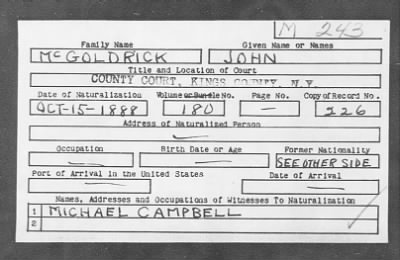 M 243
Family Name Given Name or Names
McGOLDRICK JOHN
Title and Location of Court
COUNTY COURT, KINGS COUNTY, N.Y.
Date of Naturalization Volume or Bundle No. Page No. Copy of Record No.
OCT-15-1888 180 — 226
Address of Naturalized Person
Occupation Birth Date or Age Former Nationality
SEE OTHER SIDE
Port of Arrival in the United States Date of Arrival
Names, Addresses and Occupations of Witnesses To Naturalization
1 MICHAEL CAMPBELL
2